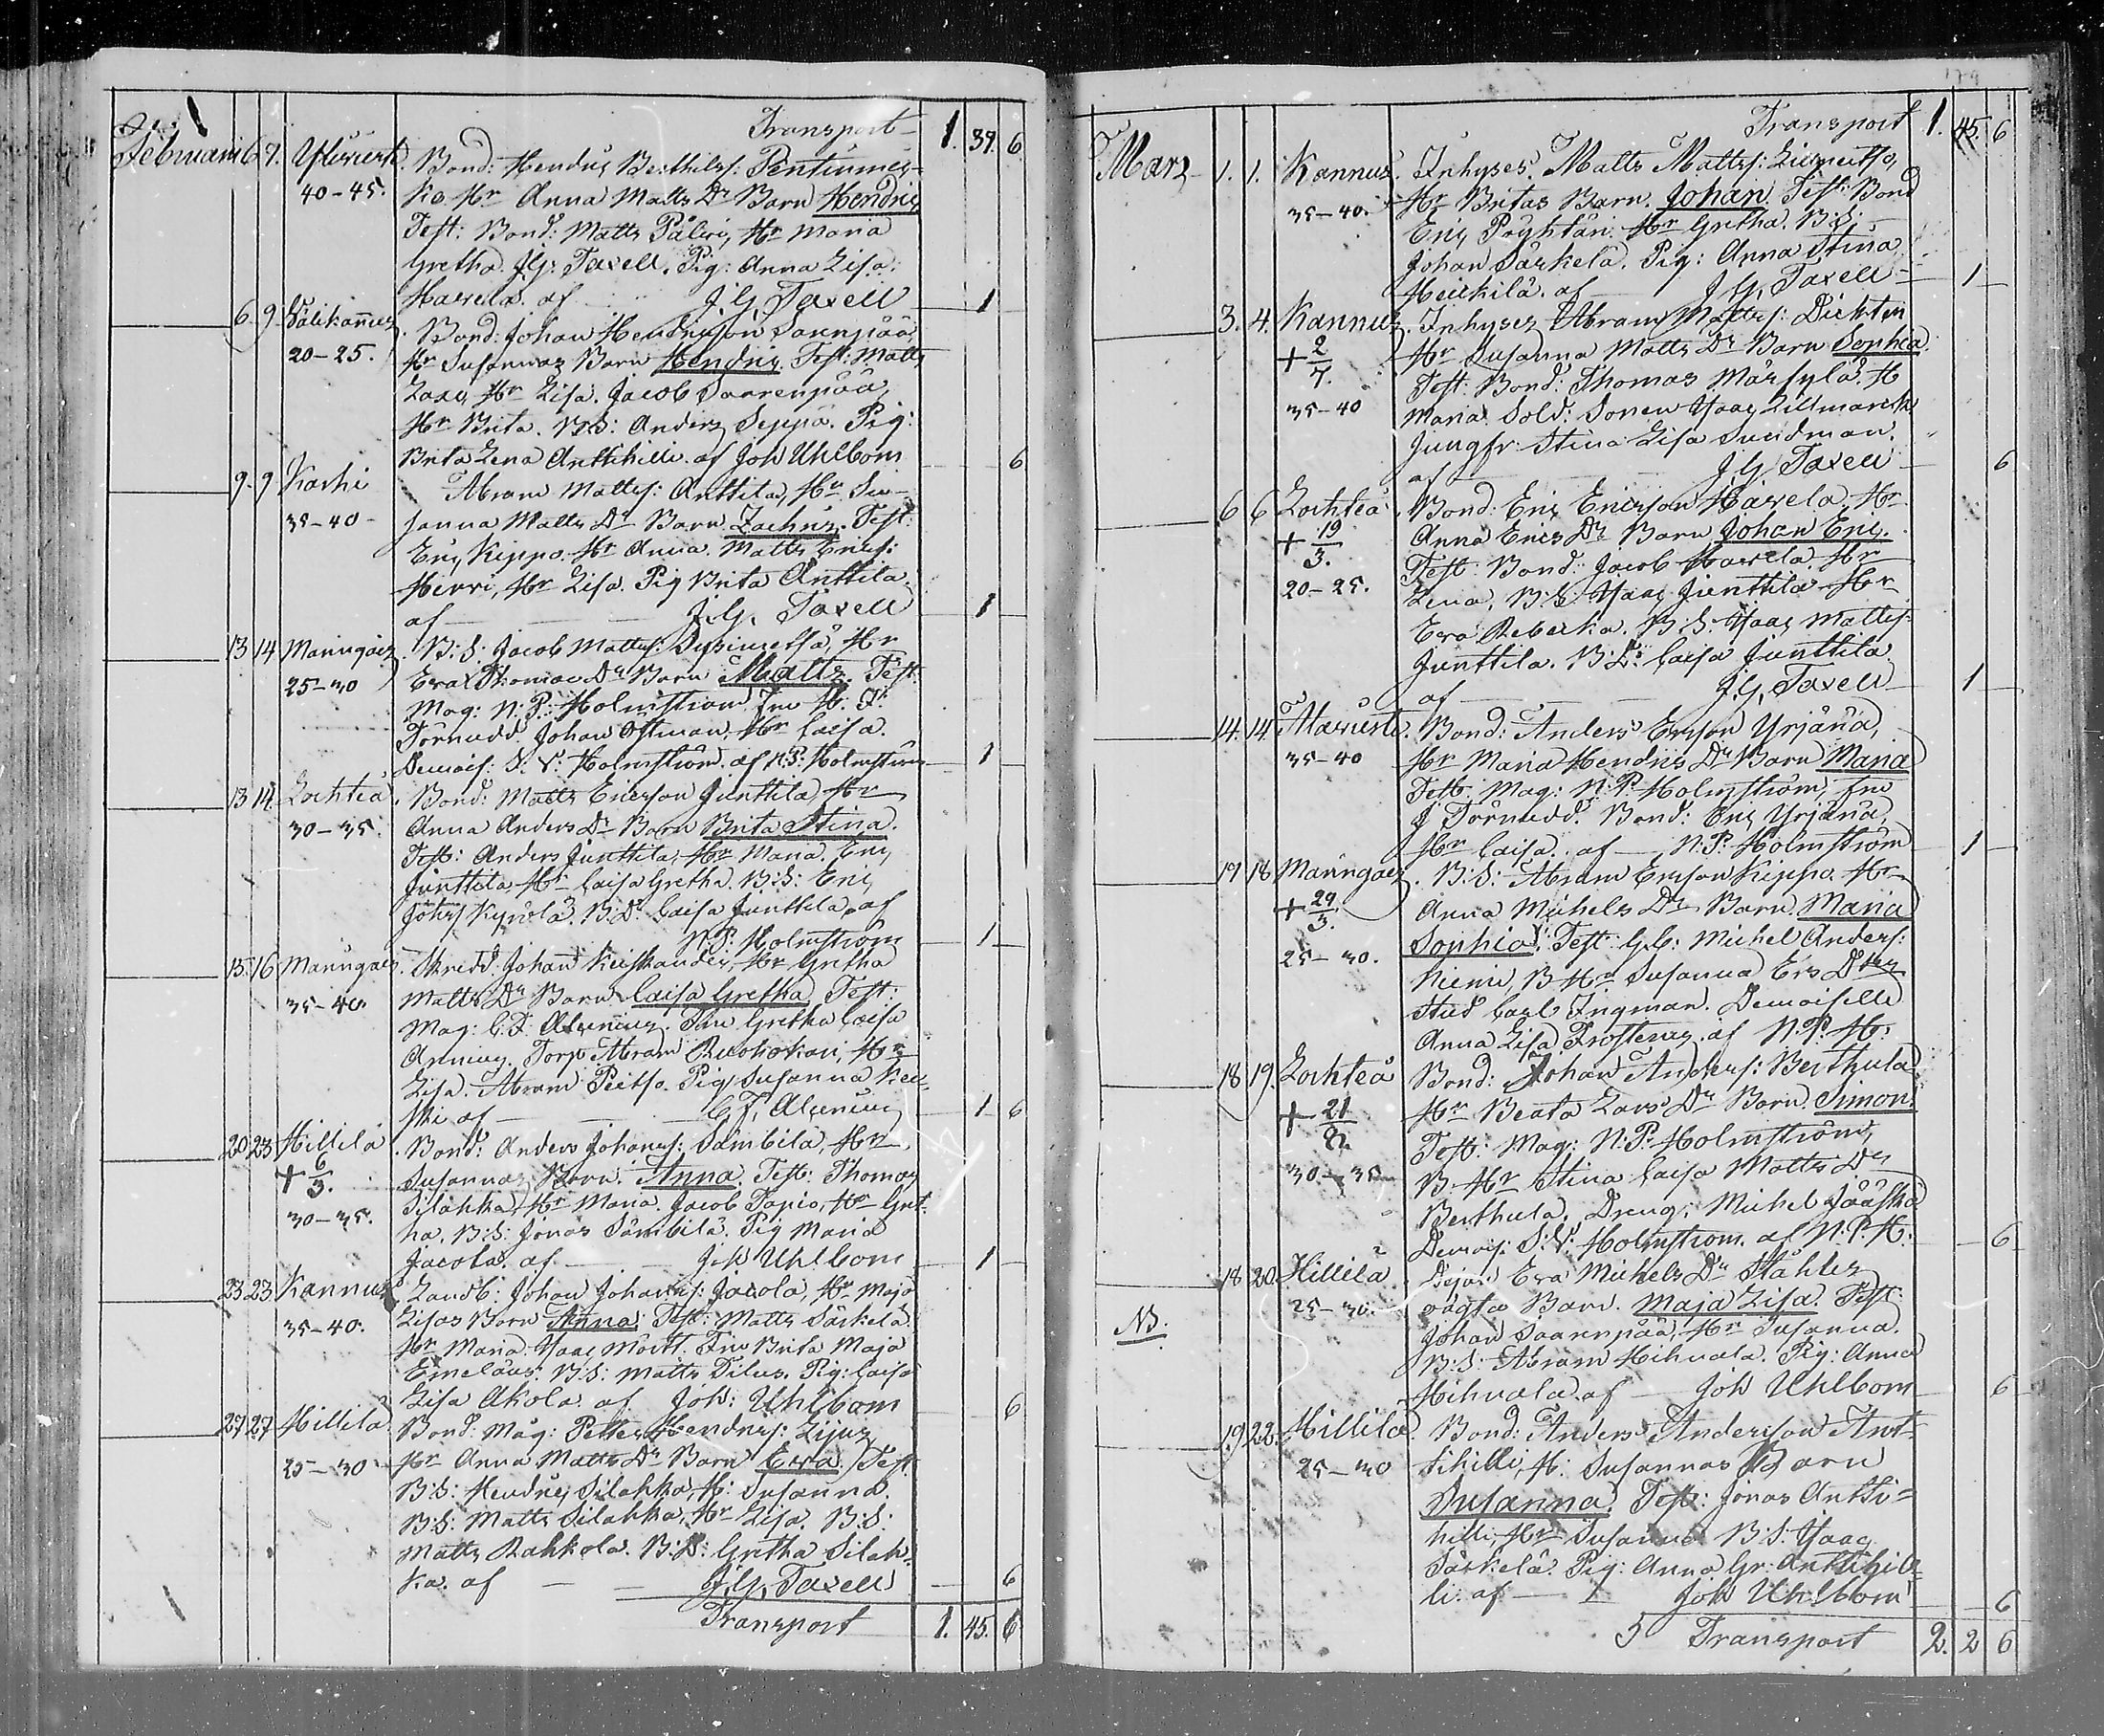 Transport 1. 39. 6.
Februari 6 7. Yliviirt. Bond: Hendric Berthilss: Pentinmiec-
40-45. ko Hr Anna Matts Dr Barn Hendric
Test: Bond: Matts Påleri, Hr Maria
Gretha. J.G. Taxell. Pig: Anna Lisa
Harrela. af J.G. Taxell 1
6 9 Välikannus. Bond: Johan Hendricson Saunpää,
20-25. Hr Susannas Barn Hendric. Test: Matts
Hr Lisa. Jacob Saarenpää,
Hr Brita. B:S: Anders Seppä. Pig:
Brita Lena Anttihilli. af Joh Uhlbom 6
9. 9 Karhi Abram Mattss: Anttila, Hr Su-
35-40 sanna Matts Dr Barn Zachris. Test:
Eric Kippo Hr Anna. Matts Ericss:
Hirvi, Hr Lisa. Pig Brita Anttila.
af J.G. Taxell 1
13 14 Maringais. B:S: Jacob Mattss: Susimetsä, Hr
25-30 Eva Thomae Dr Barn Matts. Test:
Mag: N.P. Holmström Fru H. F.
Törnudd. Johan Östman, Hr Caisa.
Demois: S. V: Holmström. af N:P: Holmström 1
13 14. Lochteå. Bond: Matts Ericsson Junttila, Hr
30-35. Anna Anders Dr Barn Brita Stina.
Test: Anders Junttila, Hr Maria. Eric
Junttila, Hr Caisa Gretha. B:S: Eric
Johss Kyrölä. B:Dr Caisa Junttila, af
N.P. Holmström 1
15 16 Maringais. Skredd: Johan Keiskander, Hr Gretha
35-40. Matts Dr Barn Caisa Gretha Test:
Mag: C.F. Alcenius. Fru Gretha Caisa
Torp Abram Ruohokari, Hr
Lisa. Abram Peitso. Pig Susanna Keis-
ki af C.F. Alcenius 1 6
20 23 Hillilä. Bond: Anders Johanss: Sämbilä, Hr
+ 6/3. Susannas Barn. Anna. Test: Thomas
30-35. Silahka, Hr Maria. Jacob Tapio, Hr Gret-
ha. B:S: Jonas Sämbilä. Pig Maria
Jacola. af Joh Uhlbom 1
23 23 Kannus. Landb: Johan Johanss: Jacola, Hr Maja
35-40. Lisas Barn Anna. Test: Matts Särkelä
Hr Maria. Isaac Fru Brita Maja
B:S: Matts Pig: Caisa
Lisa Akola. af Joh: Uhlbom 6
27 27 Hillilä. Bond: Måg: Petter Hendrss:
25-30 Hr Anna Matts Dr Barn Eva. Test
B:S: Hendric Silahka, H: Susanna.
B:S: Matts Silahka, Hr Lisa. B:S:
Matts Rahkola. B:D: Gretha Silah-
ka. af J.G. Taxell 6
Transport 1. 45. 6
Transport 1. 45. 6
Mars 1. 1. Kannus. Inhyses. Matts Mattss:
35-40. Hr Britas Barn. Johan. Test: Bond
Eric Pöyhtäri Hr Gretha. B:S:
Johan Särkelä. Pig: Anna Stina
Heickilä. af J.G. Taxell 1
3. 4. Kannus. Inhyses Abram Mattss: Dickten
+ 2/7. Hr Susanna Matts Dr Barn Sophia.
35-40 Test: Bond: Thomas Märsylä. H
Maria. Sold: Sonen Isaac Lillmarck
Jungfr: Stina Lisa Sundman.
af J.G. Taxell 6
6 6 Lochteå. Bond: Eric Ericsson Harrela, Hr
+ 19/3. Anna Erics Dr Barn Johan Eric.
20-25. Test: Bond: Jacob Harrela. Hr
Lena, B:S: Isaac Junttila Hr
Eva Rebecka. B:S: Isaac Mattss:
Junttila. B:Dr Caisa Junttila
af J.G. Taxell 1
14. 14. Bond: Anders Ersson Yrjänä,
35-40 Hr Maria Hendrics Dr Barn Maria
Test: Mag: N:P: Holmström, fru
J Törnudd. Bond: Eric Yrjänä,
Hr Caisa. af N:P: Holmström 1
17 18 Maringais. B:S: Abram Ersson Kippo Hr
+ 29/3. Anna Michels Dr Barn Maria
25-30. Sophia. Test: G.B: Michel Anderss:
Niemi, B Hr Susanna Ers Dtr
Stud Carl Ingman. Demoiselle
Anna Lisa Frosterus. af N:P: H:
18 19. Lochteå Bond: Johan Anderss: Berthula
+ 21/8. Hr Beata Lars Dr Barn. Simon.
30-35 Test: Mag: N:P: Holmström,
B. Hr Stina Caisa Matts Dr
Berthula, Dreng: Michel Jääskä
Demois: S:V: Holmström. af N:P:H: 6
18 20. Hillilä. Eva Michels Dr Ståhles
25-30. oägta Barn. Maja Lisa. Test:
NB. Johan Saarenpää, Hr Susanna.
B:S: Abram Hihnala. Pig: Anna
Hihnala. af Joh Uhlbom 6
19 22. Hillilä. Bond: Anders Anderson Ant-
25-30 tihilli, H: Susannas Barn
Susanna. Test: Jonas Antti-
hilli, Hr Susanna B:S: Isaac
Särkelä. Pig: Anna Gr: Anttihil-
li. af Joh Uhlbom 6
5 Transport 2. 2 6